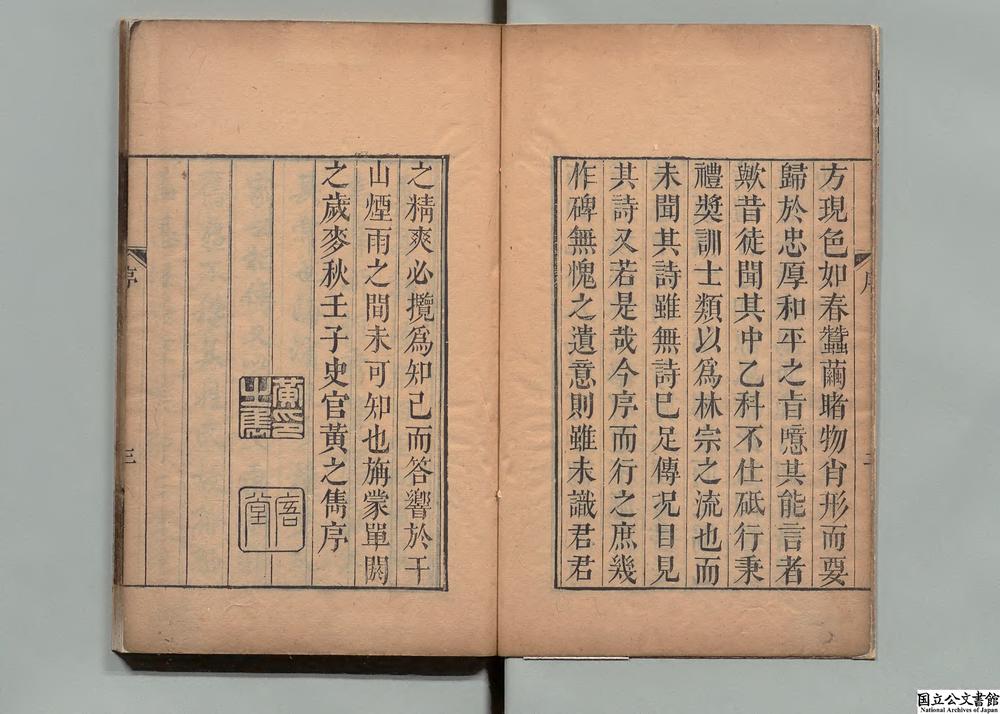 方現色如春蠶繭睹物肖形而要
歸於忠厚和平之旨噫其能言者
歟昔徒聞其中乙科不仕砥行秉
禮奬訓士類以為林宗之流也而
未聞其詩雖無詩已足傳况目見
其詩又若是哉今序而行之庶幾
作碑無愧之遺意則雖未識君君
之精爽必攬為知己而答響於干
山煙雨之間未可知也旃蒙單閼
之歲麥秋壬子史官黃之雋序
黃印
之雋
𢈪堂
序
三
国立公文書館
National Archives of Japan